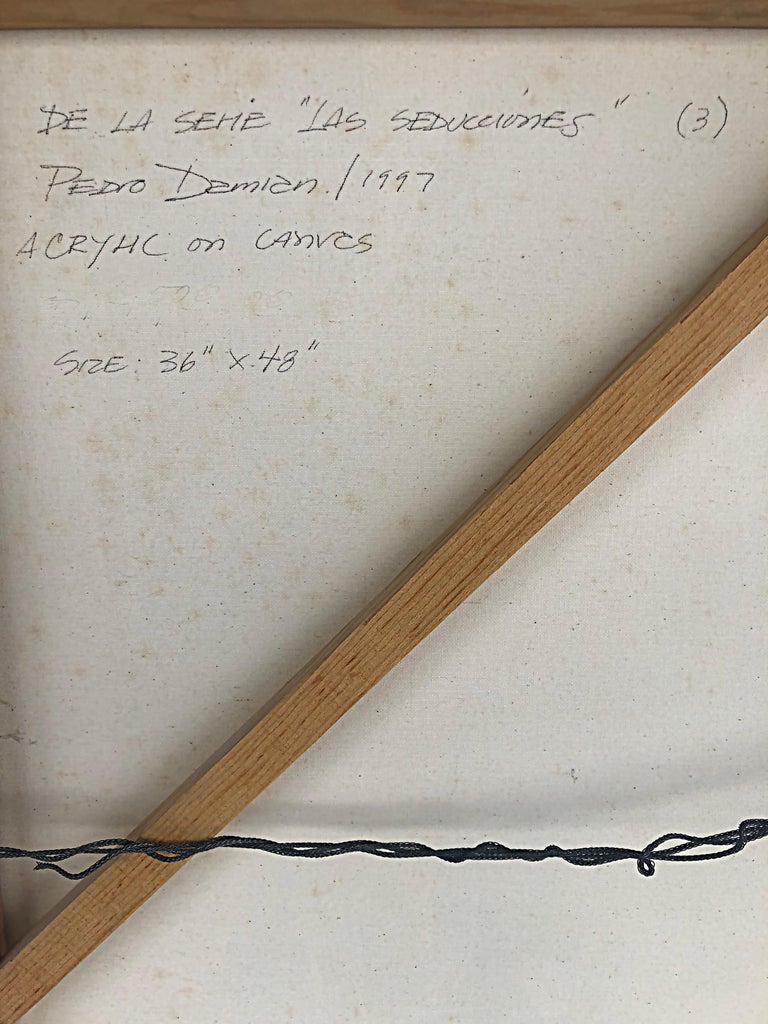 DE LA SERIE "LAS SEDUCCIONES" (3)
PEDRO Damian / 1997
ACRYLIC on CANVAS
SIZE: 36" X 48"